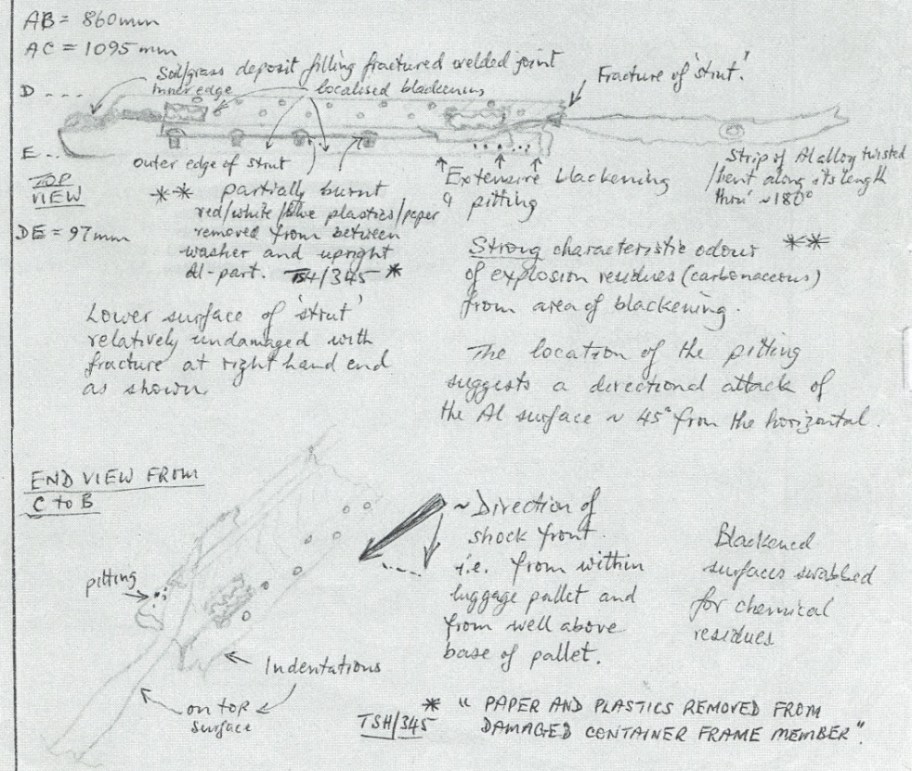 AB = 860mm
AC = 1095mm
Soil/grass deposit filling fractured welded joint
inner edge
localised blackening
Fracture of 'strut'.
D
E
TOP
VIEW
DE = 97mm
outer edge of strut
** partially burnt
red/white/blue plastics/paper
removed from between
washer and upright
Al-part. TSH/345 *
Extensive blackening
& pitting
Strip of Al alloy twisted
/bent along its length
thro' ~180°
Strong characteristic odour **
of explosion residues (carbonaceous)
from area of blackening.
Lower surface of 'strut'
relatively undamaged with
fracture at right hand end
as shown.
The location of the pitting
suggests a directional attack of
the Al surface ~ 45° from the horizontal.
END VIEW FROM
C to B
pitting
~Direction of
shock front
i.e. from within
luggage pallet and
from well above
base of pallet.
Blackened
surfaces swabbed
for chemical
residues
Indentations
on top
surface
TSH/345
* "PAPER AND PLASTICS REMOVED FROM
DAMAGED CONTAINER FRAME MEMBER".